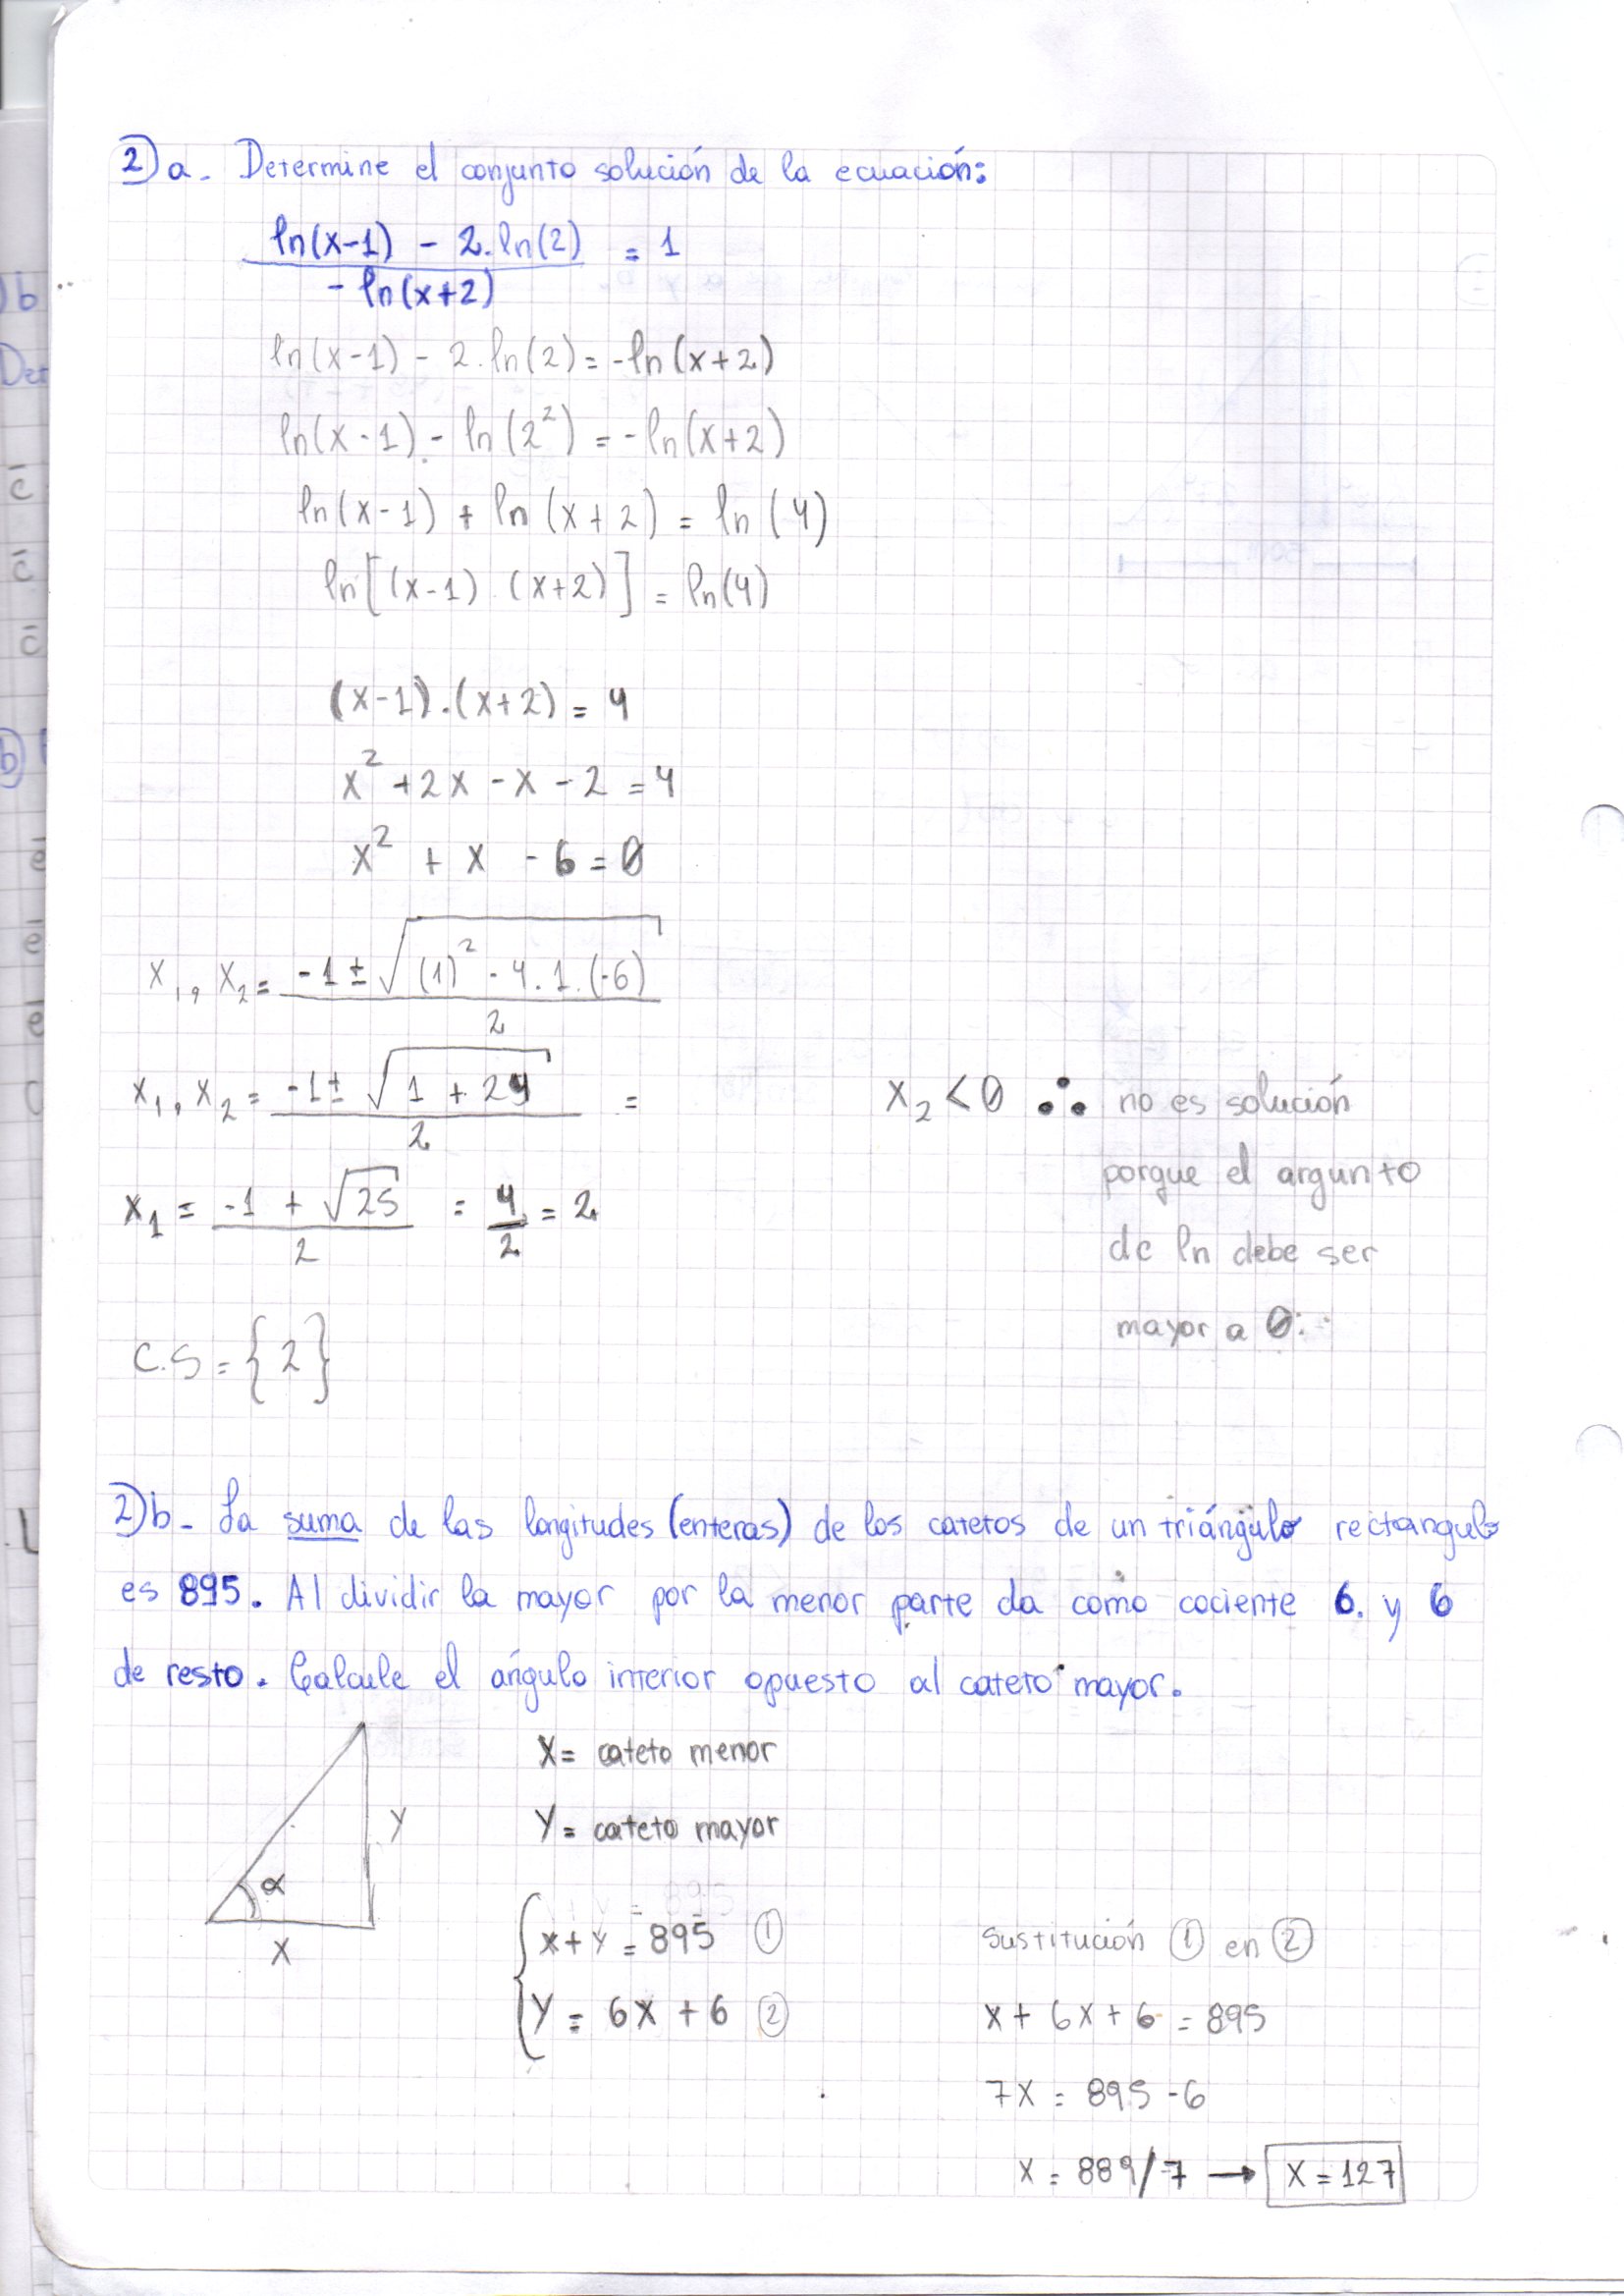 2) a. Determine el conjunto solución de la ecuación:
ln(x-1) - 2.ln(2) = 1
- ln(x+2)
ln(x-1) - 2.ln(2) = -ln(x+2)
ln(x-1) - ln(2²) = -ln(x+2)
ln(x-1) + ln(x+2) = ln(4)
ln[(x-1).(x+2)] = ln(4)
(x-1).(x+2) = 4
x² + 2x - x - 2 = 4
x² + x - 6 = 0
x₁, x₂ = -1 ± √(1)² - 4.1.(-6)
2
x₁, x₂ = -1 ± √1 + 24 =
2
x₂ < 0 ∴ no es solución
porque el argunto
de ln debe ser
mayor a 0.
x₁ = -1 + √25 = 4 = 2
2 2
C.S = {2}
2) b- La suma de las longitudes (enteras) de los catetos de un triángulo rectangulo
es 895. Al dividir la mayor por la menor parte da como cociente 6. y 6
de resto. Calcule el ángulo interior opuesto al cateto mayor.
X = cateto menor
Y = cateto mayor
y
α
x
x + y = 895 ①
y = 6x + 6 ②
Sustitución ① en ②
x + 6x + 6 = 895
7x = 895 - 6
x = 889/7 → x = 127
b
Der
c̄
c̄
c̄
b)
ē
ē
ē